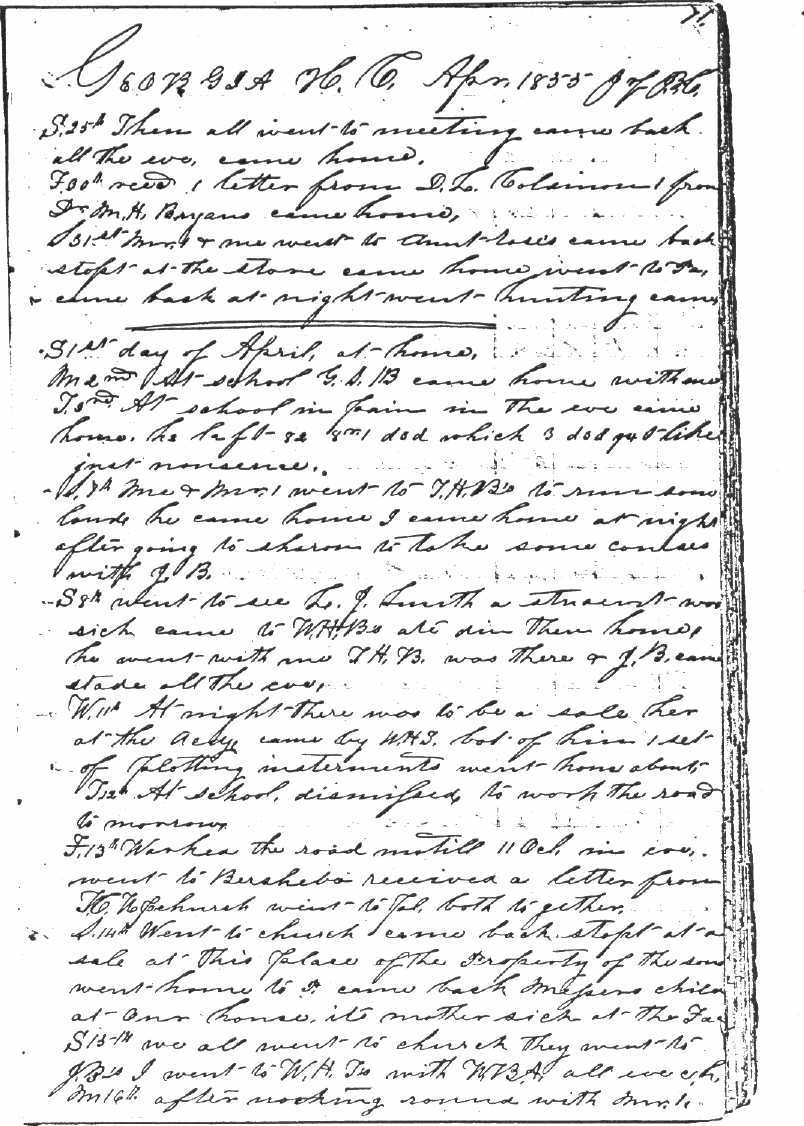 71.
GEORGIA H. C. Apr. 1855 J of B.C.
S. 25th Then all went to meeting came back
all the eve, came home.
F. 30th recd 1 letter from D. L. 1 from
Dr M. H. Bryans came home,
S 31st Mr. 1 & me went to Aunt came back
stopt at the store came home went to Fa,
came back at night went hunting came
S 1st day of April, at home,
M 2nd At school G. S. B came home with me
T. 3rd At school in pain in the eve came
home. he left 82 1 dod which 3 dod like
just nonsence.
S. 7th Me & Mr. 1 went to T. H. B's to run som
lands he came home I came home at night
after going to sharon to take some courses
with J. B.
S 8th went to see L. J. Smith a student was
sick came to W. H. B's ate din then home,
he went with me T. H. B. was there & J. B. came
stade all the eve,
W. 11th At night there was to be a sale her
at the Acdy came by W H S. bot of him 1 set
of plotting insterments went home about,
T. 12th At school, dismissed, to work the road
to morrow,
F. 13th Worked the road untill 11 Ocl, in eve,.
went to Bersheba received a letter from
went to both to gether.
S. 14th Went to church came back stopt at a
sale at this place of the Property of the
went home to F. came back Messers child
at Our house. its mother sick at the Fa
S 15th we all went to church they went to
J. B's I went to W. H. T's with W. B. A. all eve c. h.
M 16th after round with Mr. 1.